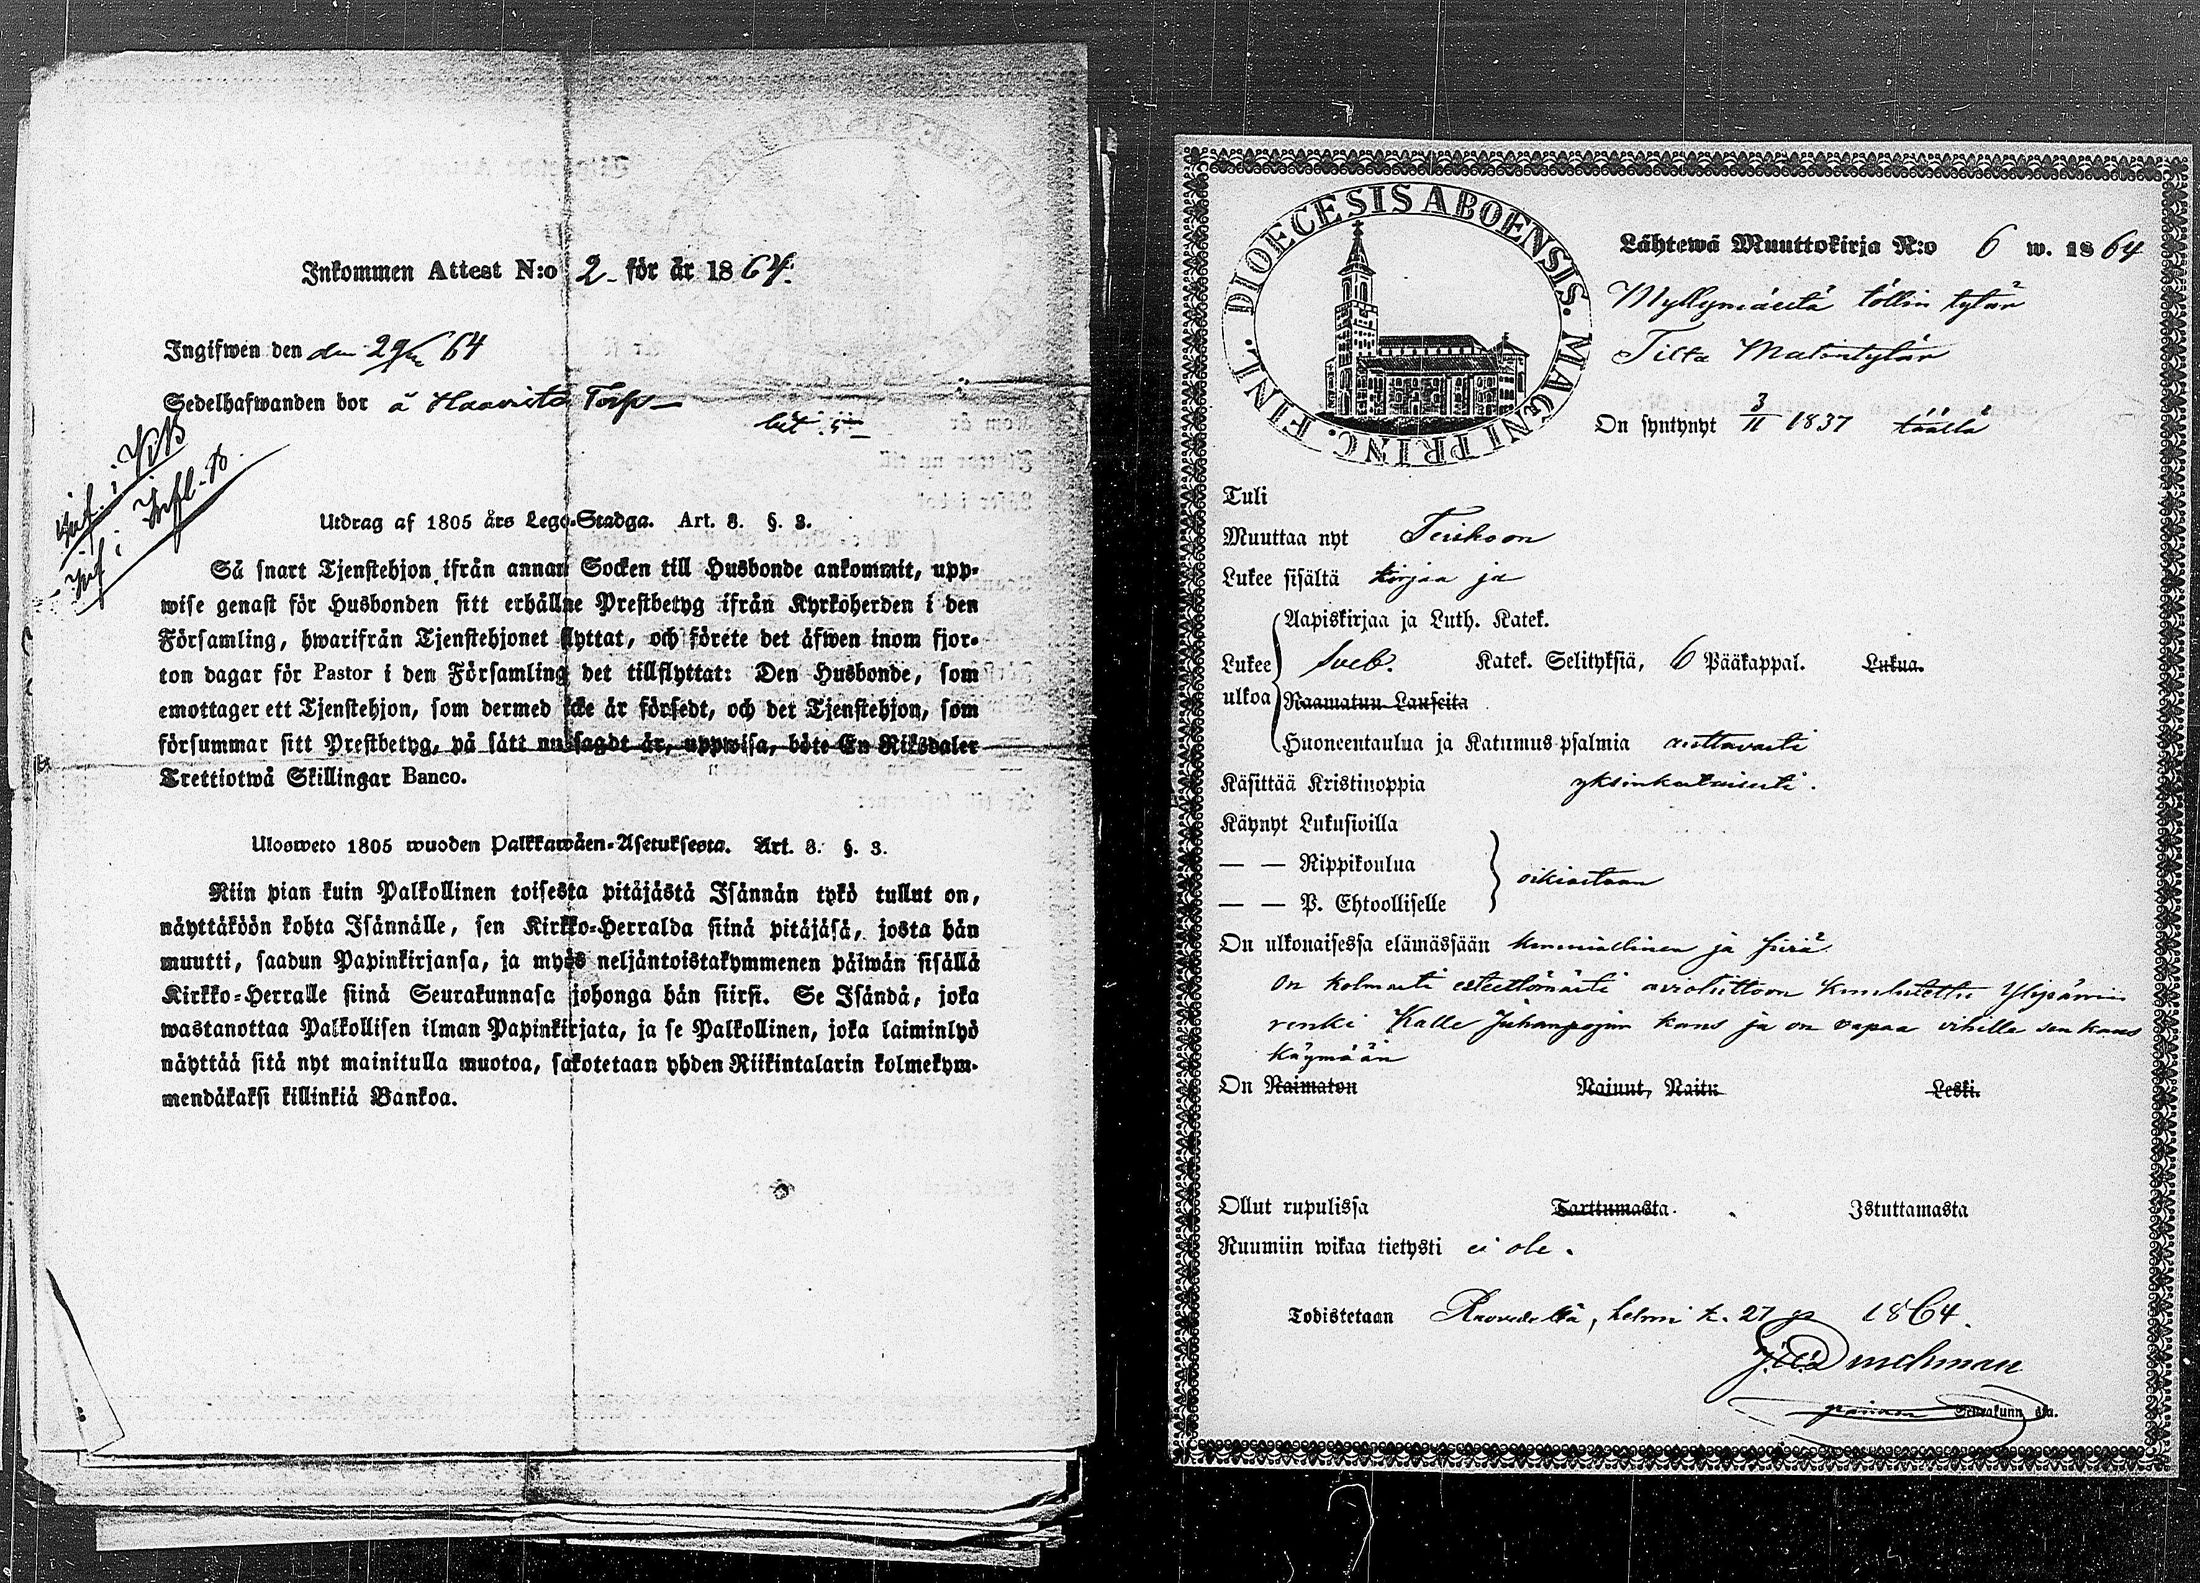 Inkommen Attest N:o 2 för år 1864.
Ingifwen den den 29/ 64
Sedelhafwanden bor å Haavisto Torp
Inf. i KB
Inf i Infl. B.
Utdrag af 1805 års Lego-Stadga. Art. 8. §. 3.
Så snart Tjenstehjon ifrån annan Socken till Husbonde ankommit, upp-
wise genast för Husbonden sitt erhållne Prestbetyg ifrån Kyrkoherden i den
Församling, hwarifrån Tjenstehjonet flyttat, och förete det äfwen inom fjor-
ton dagar för Pastor i den Församling det tillflyttat: Den Husbonde, som
emottager ett Tjenstehjon, som dermed icke är försedt, och det Tjenstehjon, som
försummar sitt Prestbetyg, på sätt nu sagdt är, uppwisa, böte En Riksdaler
Trettiotwå Skillingar Banco.
Ulosweto 1805 wuoden Palkkawäen-Asetuksesta. Art. 8. §. 3.
Niin pian kuin Palkollinen toisesta pitäjästä Isännän tykö tullut on,
näyttäköön kohta Isännälle, sen Kirkko-Herralda siinä pitäjäsä, josta hän
muutti, saadun Papinkirjansa, ja myös neljäntoistakymmenen päiwän sisällä
Kirkko-Herralle siinä Seurakunnasa johonga hän siirsi. Se Isändä, joka
wastanottaa Palkollisen ilman Papinkirjata, ja se Palkollinen, joka laiminlyö
näyttää sitä nyt mainitulla muotoa, sakotetaan yhden Riikintalarin kolmekym-
mendäkaksi killinkiä Bankoa.
DIOECESIS ABOENSIS. MAGNI PRINC. FINL.
Lähtewä Muuttokirja N:o 6 w. 1864
Myllymäestä töllin tytär
Tilta Matintytär
On syntynyt 3/11 1837 täällä
Tuli
Muuttaa nyt Teiskoon
Lukee sisältä kirjaa ja
Aapiskirjaa ja Luth. Katek.
Lukee ulkoa Sveb. Katek. Selityksiä, 6 Pääkappal. Lukua.
Raamatun Lauseita
Huoneentaulua ja Katumus-psalmia auttavasti
Käsittää Kristinoppia yksinkertaisesti.
Käynyt Lukusioilla
— — Rippikoulua
— — P. Ehtoolliselle oikiastaan
On ulkonaisessa elämässään kunniallinen ja siviä
On kolmasti esteettömästi avioliittoon kuulutettu Ylipäirin
renki Kalle Juhanpojan kans ja on vapaa vihille sen kans
käymään
On Naimaton Nainut, Naitu Leski.
Ollut rupulissa Tarttumasta. Istuttamasta
Ruumiin wikaa tietysti ei ole.
Todistetaan Ruovedellä, helmi k. 27 p 1864.
Durchman
Seurakunn